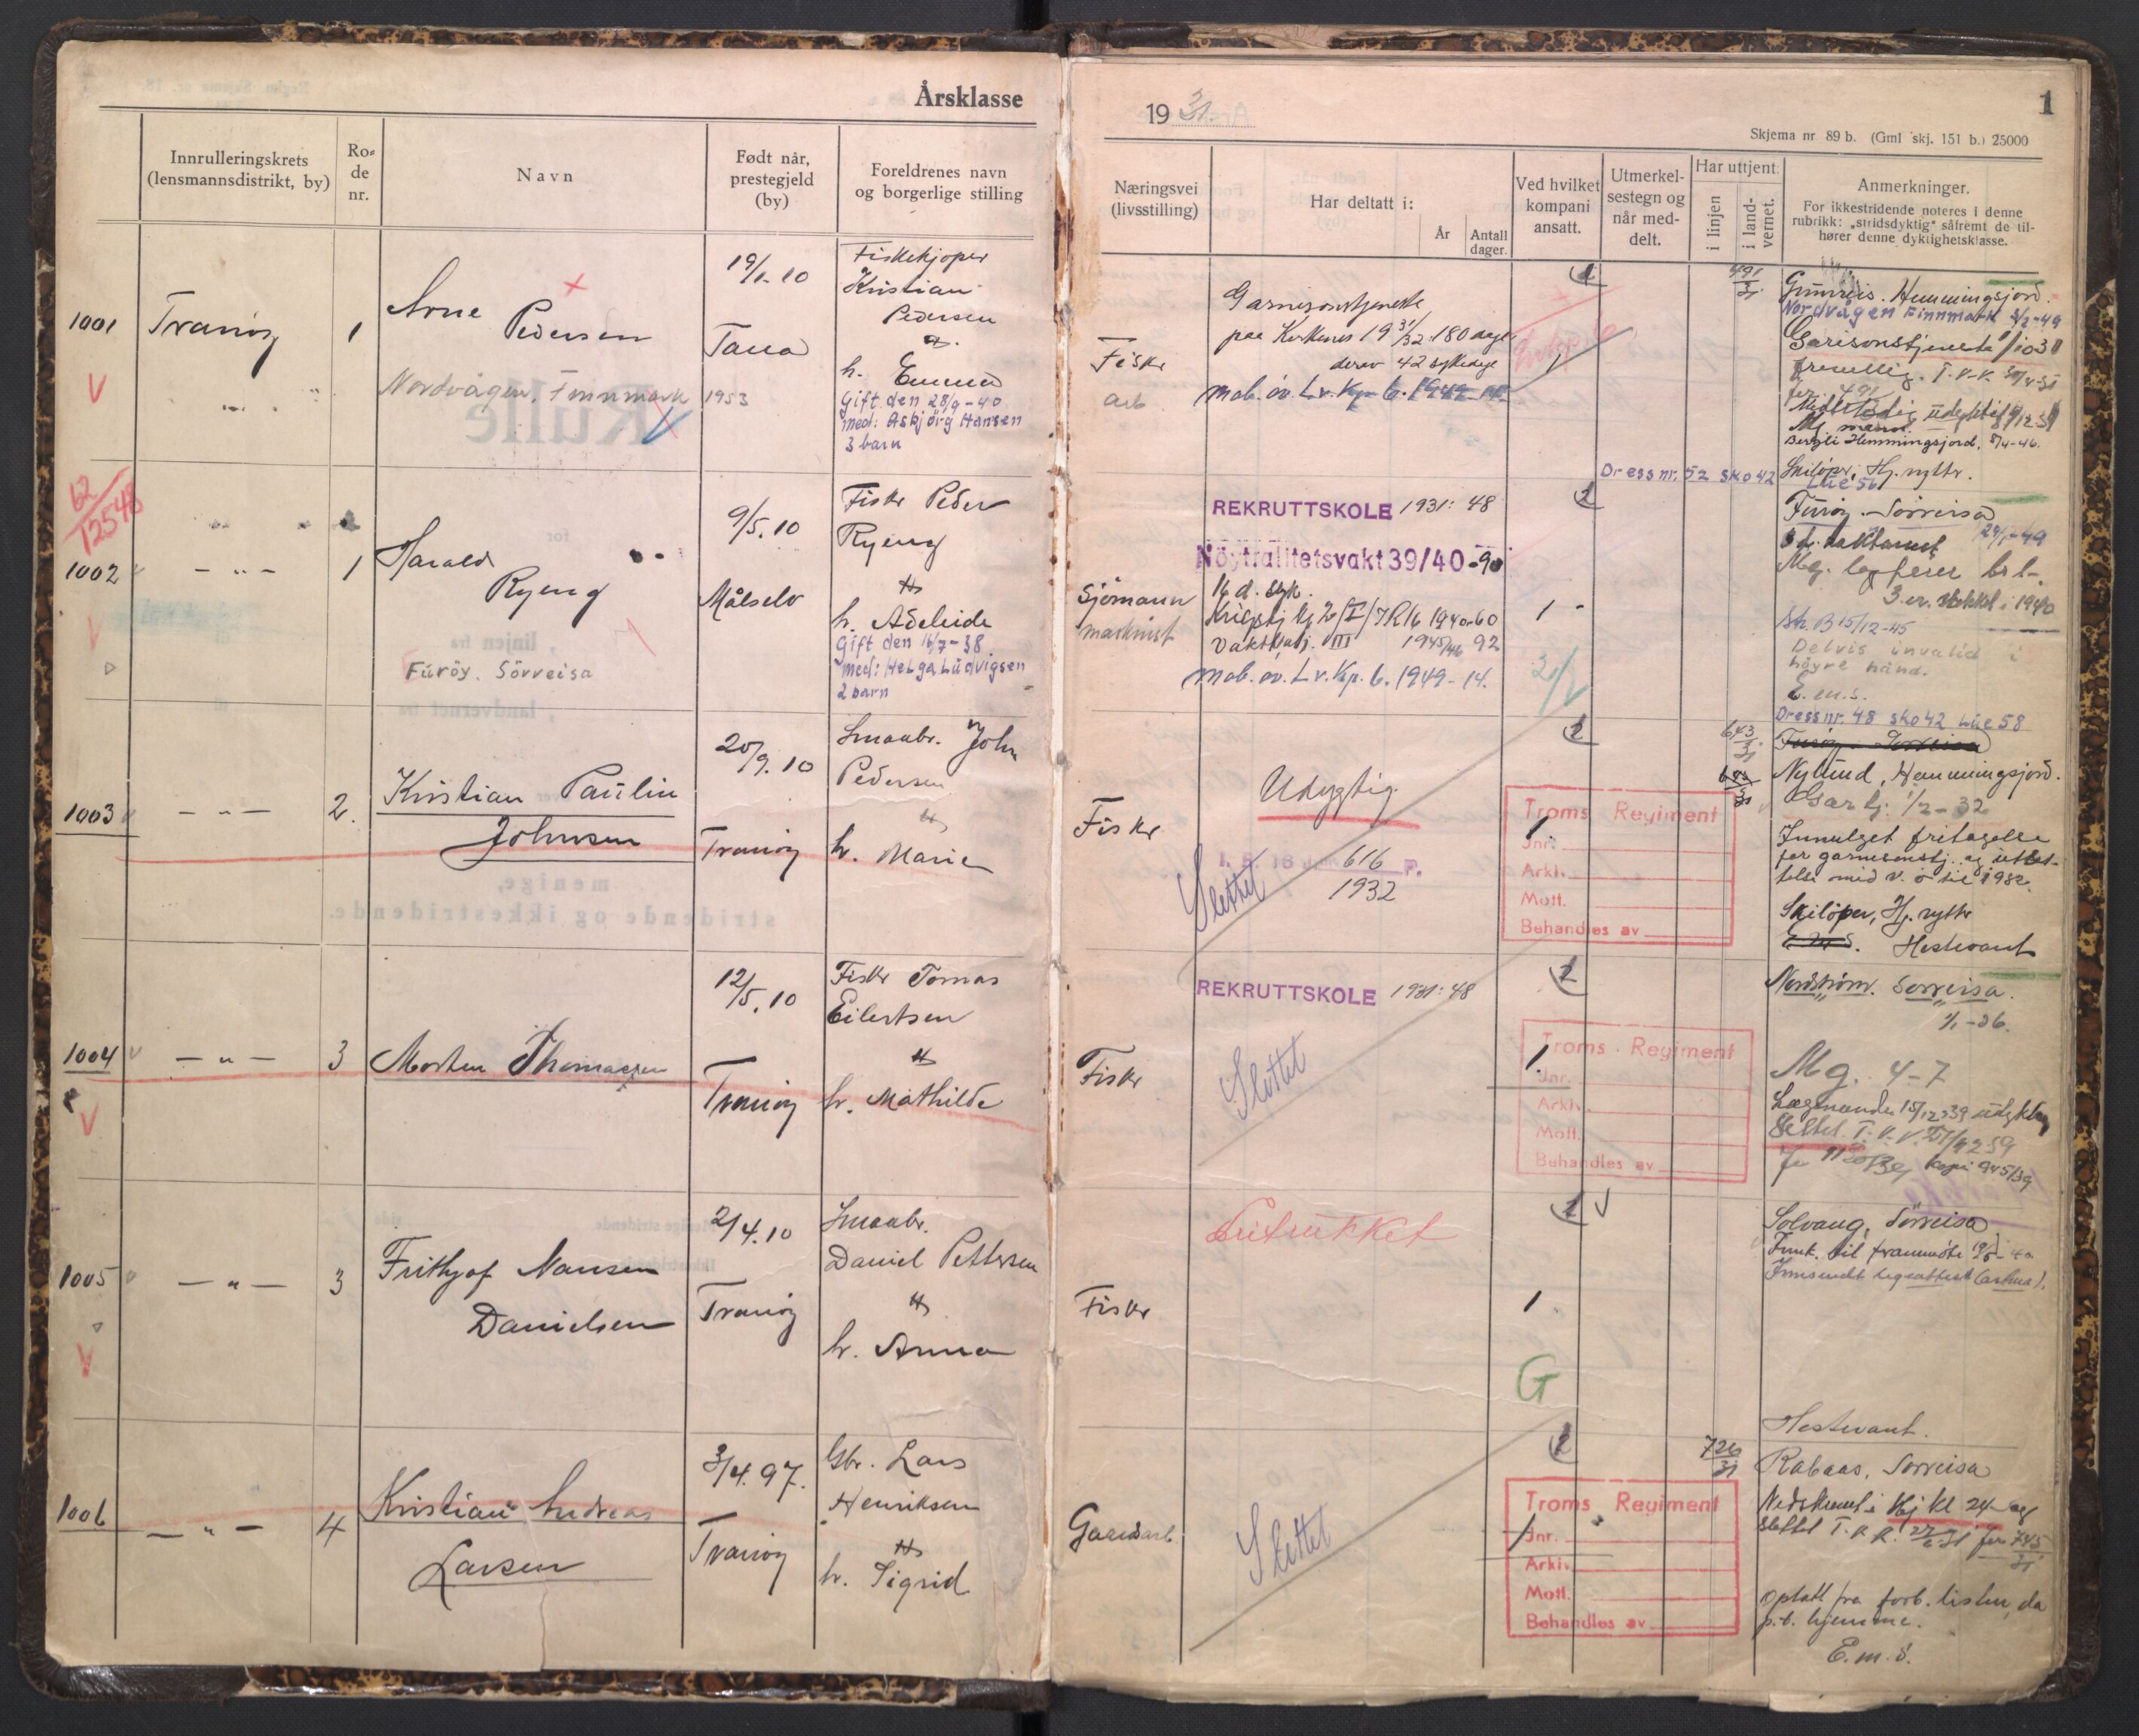 Årsklasse
Innrulleringskrets
(lensmannsdistrikt, by)
Ro-
de
nr.
Navn
Født når,
prestegjeld
(by)
Foreldrenes navn
og borgerlige stilling
1001
Tranöy
1
Arne
Pedersen
Nordvågen, Finnmark 1953
19/1-10
Tana
Fiskekjøper
Kristian
Pedersen
h. Emma
Gift den 28/9-40
med: Asbjörg Hansen
3 barn
62
12548
1002
— " —
1
Harald
Ryeng
Furöy. Sörreisa
9/5.10
Målselv
Fisker Peder
Ryeng
h. Adeleide
Gift den 16/7-38
med: Helga Ludvigsen
2 barn
1003
— " —
2.
Kristian Paulin
Johnsen
20/9.10
Tranöy
Smaabr. John
Pedersen
h. Marie
1004
— " —
3
Morten Thomassen
12/5.10
Tranöy
Fisker Tomas
Eilertsen
h. Mathilde
1005
— " —
3
Frithjof Nansen
Danielsen
2/4.10
Tranöy
Smaabr.
Daniel Pettersen
h. Anna
1006
— " —
4
Kristian Andreas
Larsen
3/4.97.
Tranöy
Gbr. Lars
Henriksen
h. Sigrid
1931.
1
Skjema nr. 89 b. (Gml skj. 151 b.) 25000
Næringsvei
(livsstilling)
Har deltatt i:
År
Antall
dager.
Ved hvilket
kompani
ansatt.
Utmerkel-
sestegn og
når med-
delt.
Har uttjent:
i linjen
i land-
vernet.
Anmerkninger.
For ikkestridende noteres i denne
rubrikk: „stridsdyktig" såfremt de til-
hører denne dyktighetsklasse.
Fisker
arb
Garnisonstjeneste
paa Kirkenes 19 31/32 180 dage
derav 42 sykedage
mob. øv. Lv. Kp. 6. 1949-14.
1
491
31
Hemmingsjord.
Nordvågen Finnmark 2/2-49
Garisonstjeneste
Bergli Hemmingsjord, 5/4-46.
Dress nr. 52 sko 42
Skilöper, Hj. rytter.
Lue 56
Sjömann
maskinist
REKRUTTSKOLE 1931: 48
Nöytralitetsvakt 39/40-90
16 d. syk.
Krigstj Kp 2/I/IR16 1940-60
Vaktbatj. III 1945/46 92
mob. øv. Lv. Kp. 6. 1949-14.
1
Furöy. Sörreisa
24/1-49
Str. B 15/12-45
Delvis invalid i
höyre hånd.
E.m.s.
Dress nr. 48 sko 42 Lue 58
Fisker
Udygtig.
616
1932
Slettet
Troms Regiment
Jnr.
Arkiv.
Mott.
Behandles av
1.
643
31
Nylund, Hemmingsjord.
Gar tj. 1/2-32
Innvilget fritagelse
for garnisonstj. og utset-
telse med v. ö til 1932.
Skilöper, Hj. rytter
Hestevant
Fisker
REKRUTTSKOLE 1931: 48
Slettet
Troms Regiment
Jnr.
Arkiv.
Mott.
Behandles av
1.
Nordström. Sörreisa.
1/1-36.
Mg. 4-7
Lægenemnda 15/12-39 udyktig
Fisker
Fritrukket
1
G
Solvang, Sörreisa
Innsendt legeattest (astma).
Gaardsarb.
Slettet
Troms Regiment
Jnr.
Arkiv.
Mott.
Behandles av
726
31
Hestevant.
Rabaas, Sörreisa
Opsatt fra forb. listen, da
p.t. hjemme.
E.m.s.